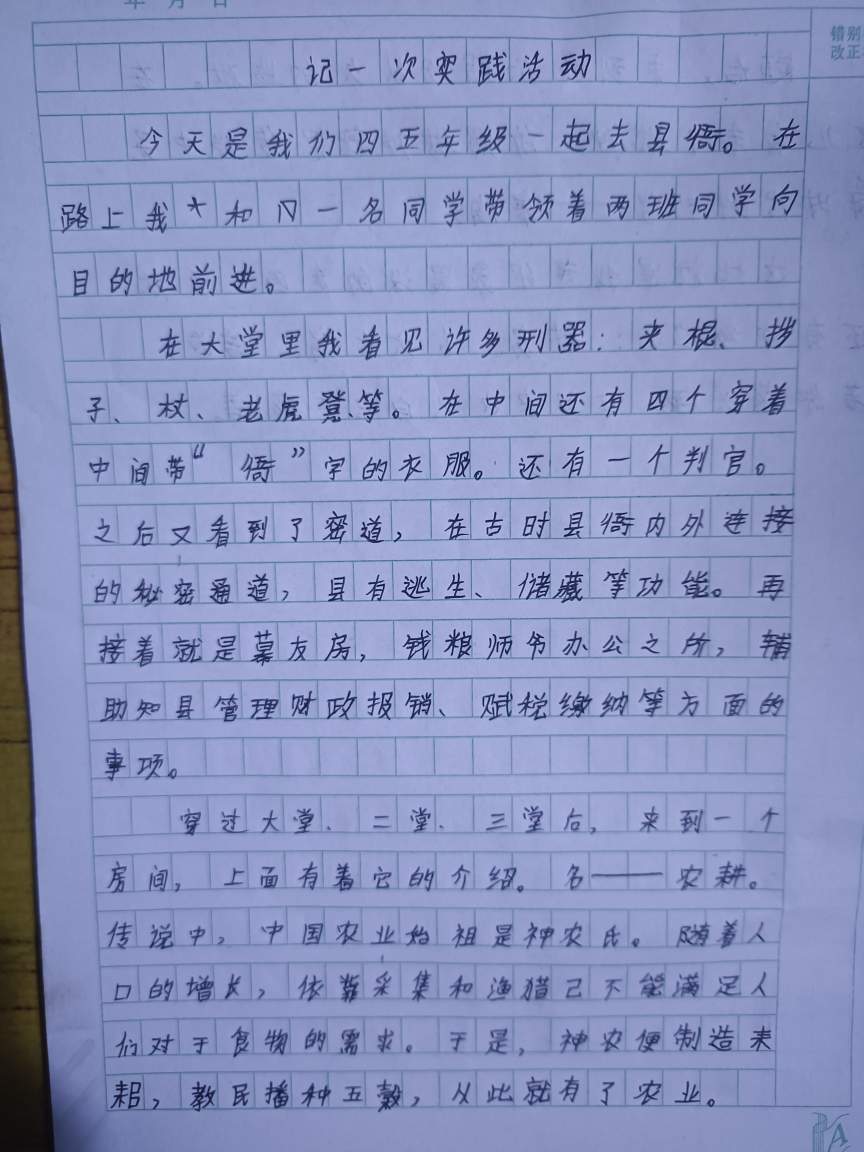 年 月 日
错别
改正
记一次实践活动
今天是我们四五年级一起去县衙。在
路上我*和 一名同学带领着两班同学向
目的地前进。
在大堂里我看见许多刑器：夹棍、拶
子、杖、老虎凳、等。在中间还有四个穿着
中间带“衙”字的衣服。还有一个判官。
之后又看到了密道，在古时县衙内外连接
的秘密通道，具有逃生、储藏等功能。再
接着就是幕友房，钱粮师爷办公之所，辅
助知县管理财政报销、赋税缴纳等方面的
事项。
穿过大堂、二堂、三堂后，来到一个
房间，上面有着它的介绍。名——农耕。
传说中，中国农业始祖是神农氏。随着人
口的增长，依靠采集和渔猎己不能满足人
们对于食物的需求。于是，神农便制造耒
耜，教民播种五榖，从此就有了农业。